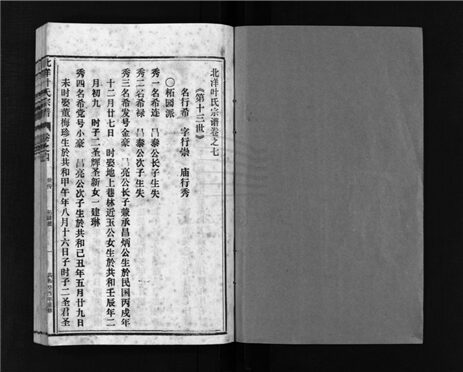 北洋叶氏宗谱卷之七
《第十三世》
名行希　字行崇　庙行秀
〇柘园派
秀一名希连　昌泰公长子生失
秀二名希禄　昌泰公次子生失
秀三名希发号金豪　昌亮公长子兼承昌炳公生於民国丙戌年
十二月廿七日　时娶地上巷林近玉公女生於共和壬辰年二
月初九　时子二圣辉圣新女一建琳
秀四名希党号小豪　昌亮公次子生於共和己丑年五月廿九日
未时娶董梅珍生於共和甲午年八月十六日子时子二圣君圣
北洋叶氏宗谱